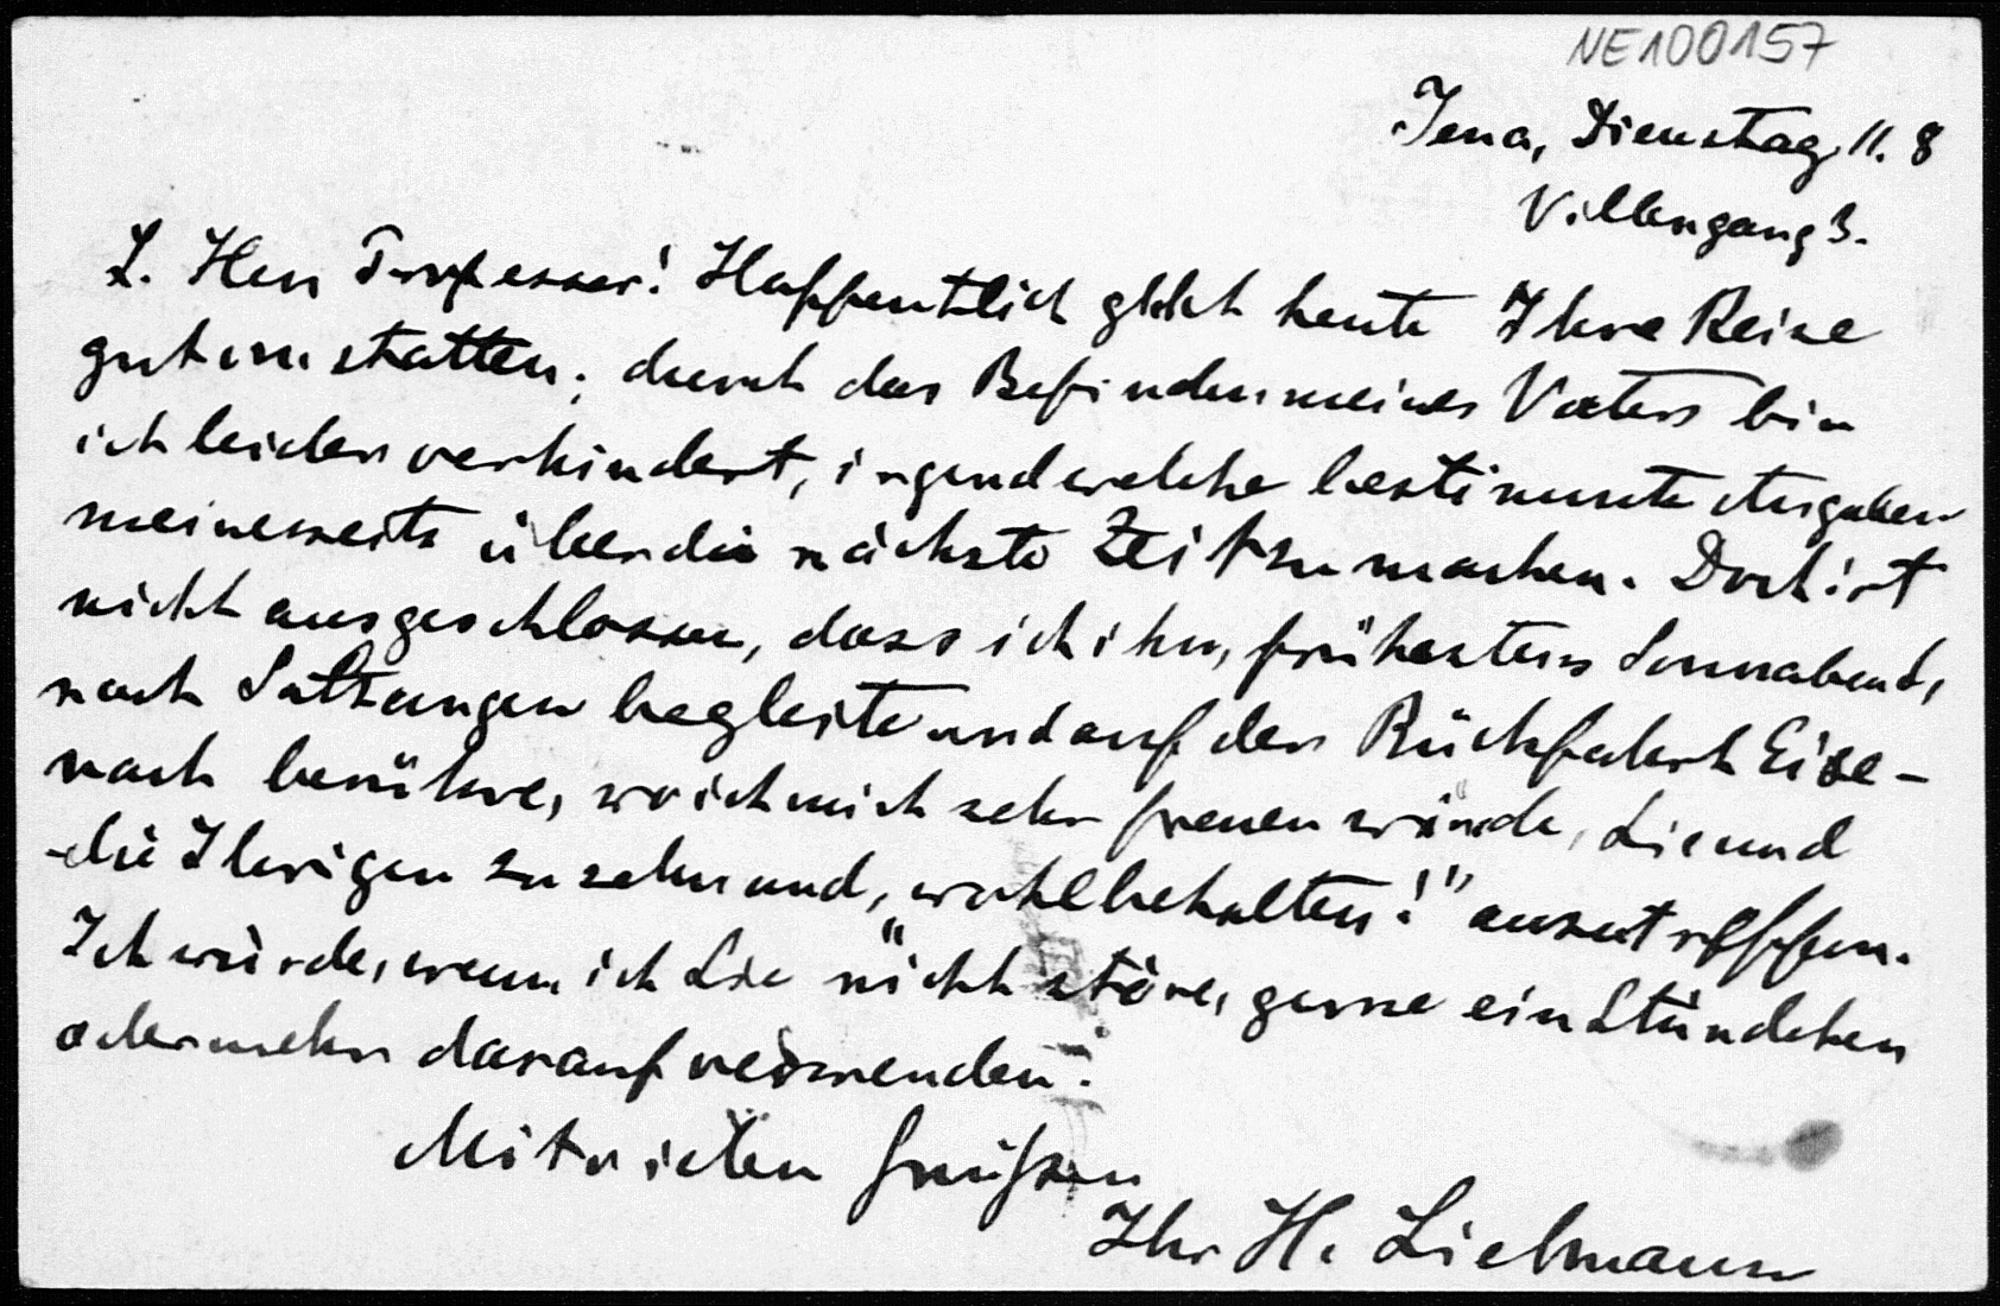 NE100157
Jena, Dienstag 11. 8
Villengang 3.
L. Herr Professor! Hoffentlich glückt heute Ihre Reise
gut von statten; durch das Befinden meines Vaters bin
ich leider verhindert, irgendwelche bestimmte Angaben
meinerseits über die nächste Zeit zu machen. Doch ist
nicht ausgeschlossen, dass ich ihn, frühestens Sonnabend,
nach Salzungen begleite und auf der Rückfahrt Eise-
nach berühre, wo ich mich sehr freuen würde, Sie und
die Ihrigen zu sehn und „wohlbehalten!" anzutreffen.
Ich würde, wenn ich Sie nicht störe, gerne ein Stündchen
oder mehr darauf verwenden.
Mit vielen Grüßen
Ihr H. Liebmann